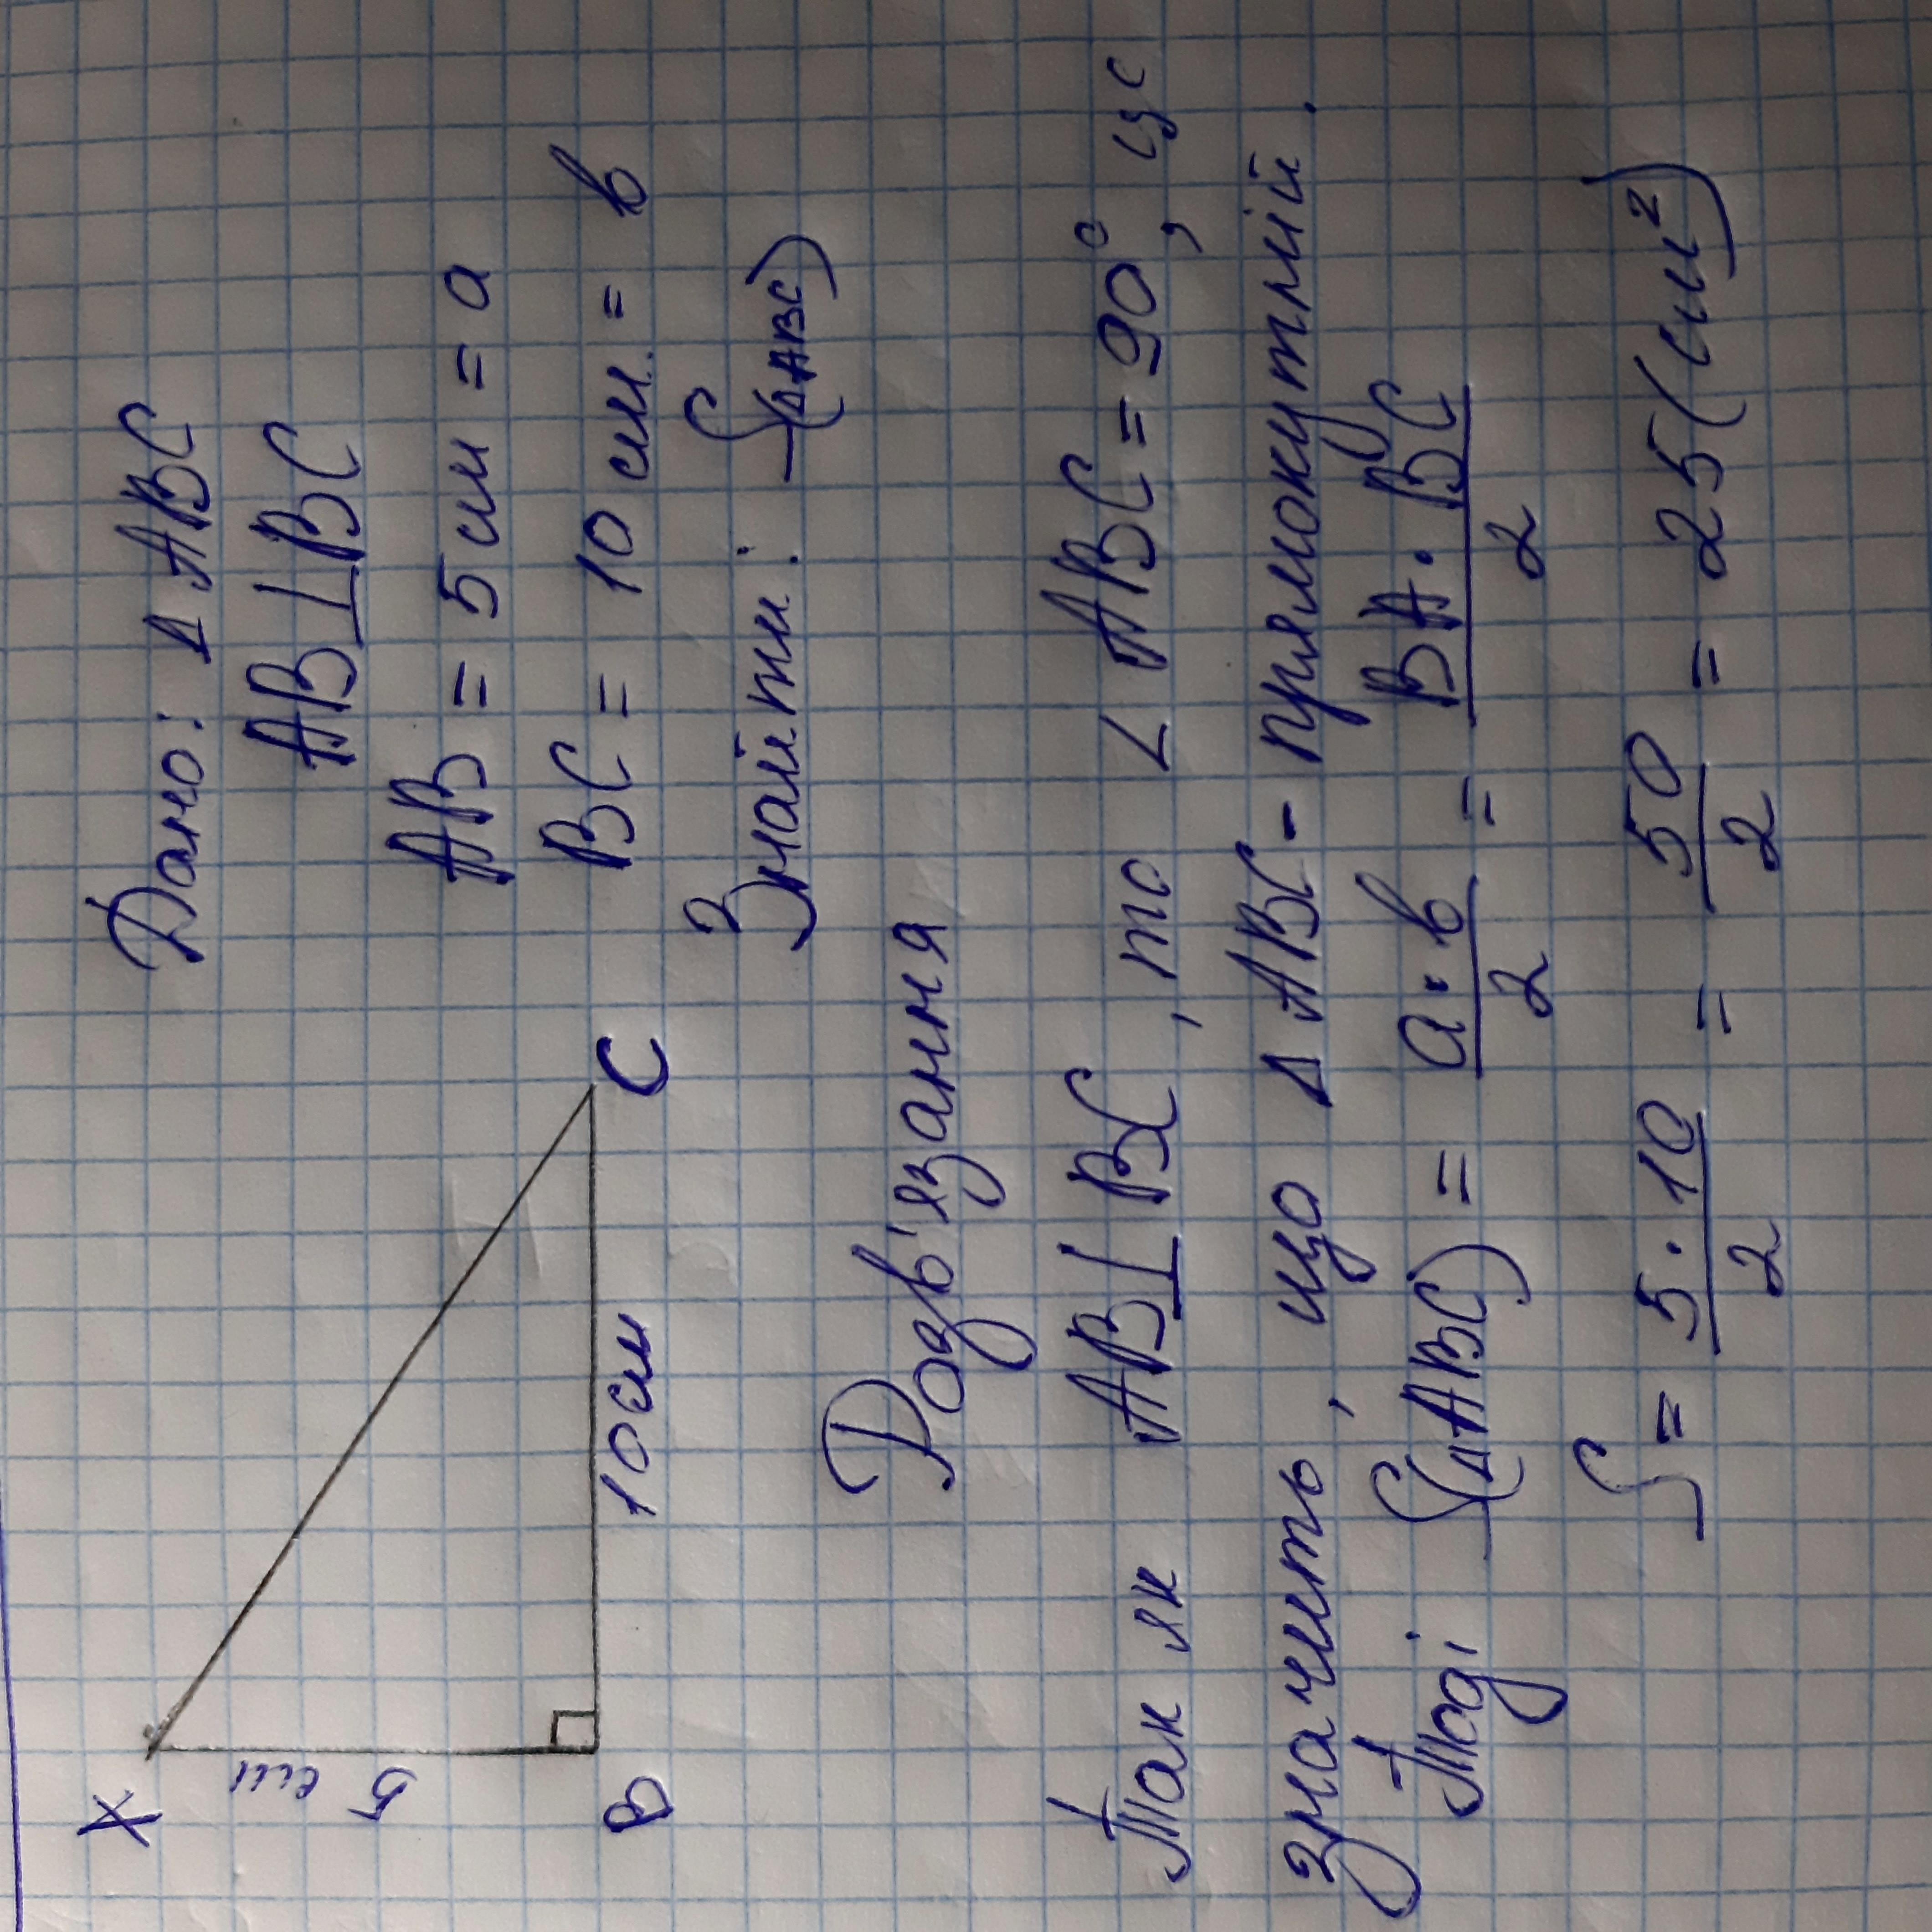 Дано: Δ ABC
AB ⊥ BC
AB = 5 см = a
BC = 10 см. = b
Знайти: S(ΔABC)
A
5 см
B
10 см
C
Розв'язання
Так як AB ⊥ BC, то ∠ ABC = 90°, це
значить, що Δ ABC - прямокутний.
Тоді S(ΔABC) = a·b/2 = BA·BC/2
S = 5·10/2 = 50/2 = 25 (см²)